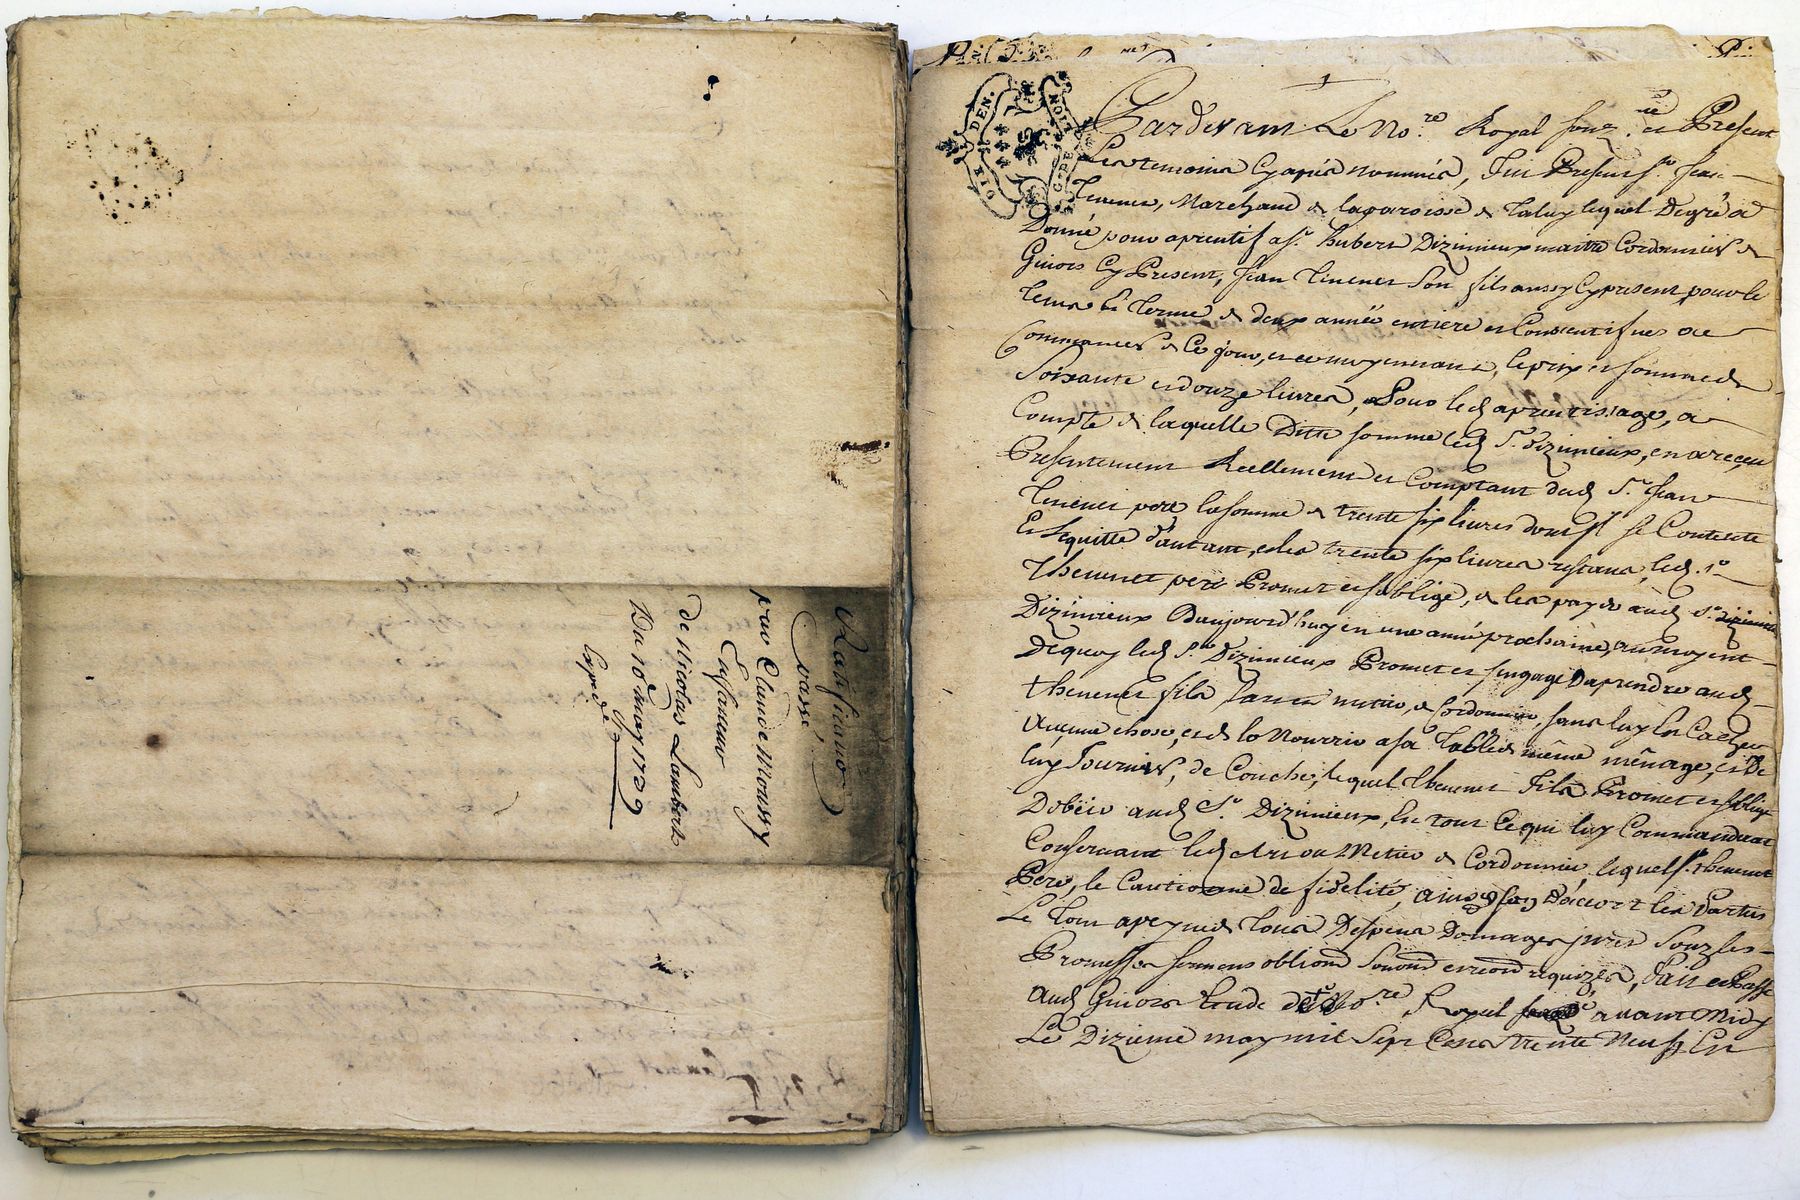 Ratificatio
passé
par Claude Moussy
En faveur
de Nicolas Lambert
Du 10e may 1739
Expedié
DEN.
LION
G. DE
Pardevant Le No.re Royal souz.né et Present
Les temoins Cyaprés nommés, fut Present Sr. Jean
Tevenet, Marchand de laparoisse de Taluy lequel Degré a
Donné pour aprentif a Sr. hubert Dizimieux maitre Cordonnier de
Givors Cy Present, Jean Tevenet Son fils aussy Cypresent, pour le
Tems & Terme de deux année entiere et Consecutifves a
Commancer de Ce jour, et ce moyennant, le prix et somme de
Soixante et douze livres, Pour led aprentissage, a
Compte de laquelle Ditte somme led Sr. Dizimieux, en a receu
Presentement Reellement et Comptant dud Sr. Jean
Tevenet pere la somme de trente six livres dont Il se Contente
Et quitte d'autant, et les trente six livres restans, led. Sr
Thevenet pere Promet et soblige, de les payer aud Sr
Dizimieux Daujourd'huy en une année prochaine, au moyent
Dequoy led Sr. Dizimieux Promet et sengage Daprendre aud
thevenet fils Sond metier, de Cordonnier, sans luy En Cacher
Aucune chose, et de le Nourrir a sa Table même ménage, et De
luy Fournir, de Couche, lequel thevenet Fils Promet et soblige
Dobeir aud Sr. Dizimieux, En tout Ce qui luy Commandera
Consernant led Art ou Metier de Cordonnier, lequel Sr. thevenet
Pere, le Cautionne de fidelité, ainsy D'acort les Parties
Le Tout a peyne de Tous Despens Domages Souz les
Promesses sermens obliond et requizes, Fait et Passé
Aud Givors Etude No.re Royal avant Midy
Le Dizieme may mil Sept Cens trente Neuf En